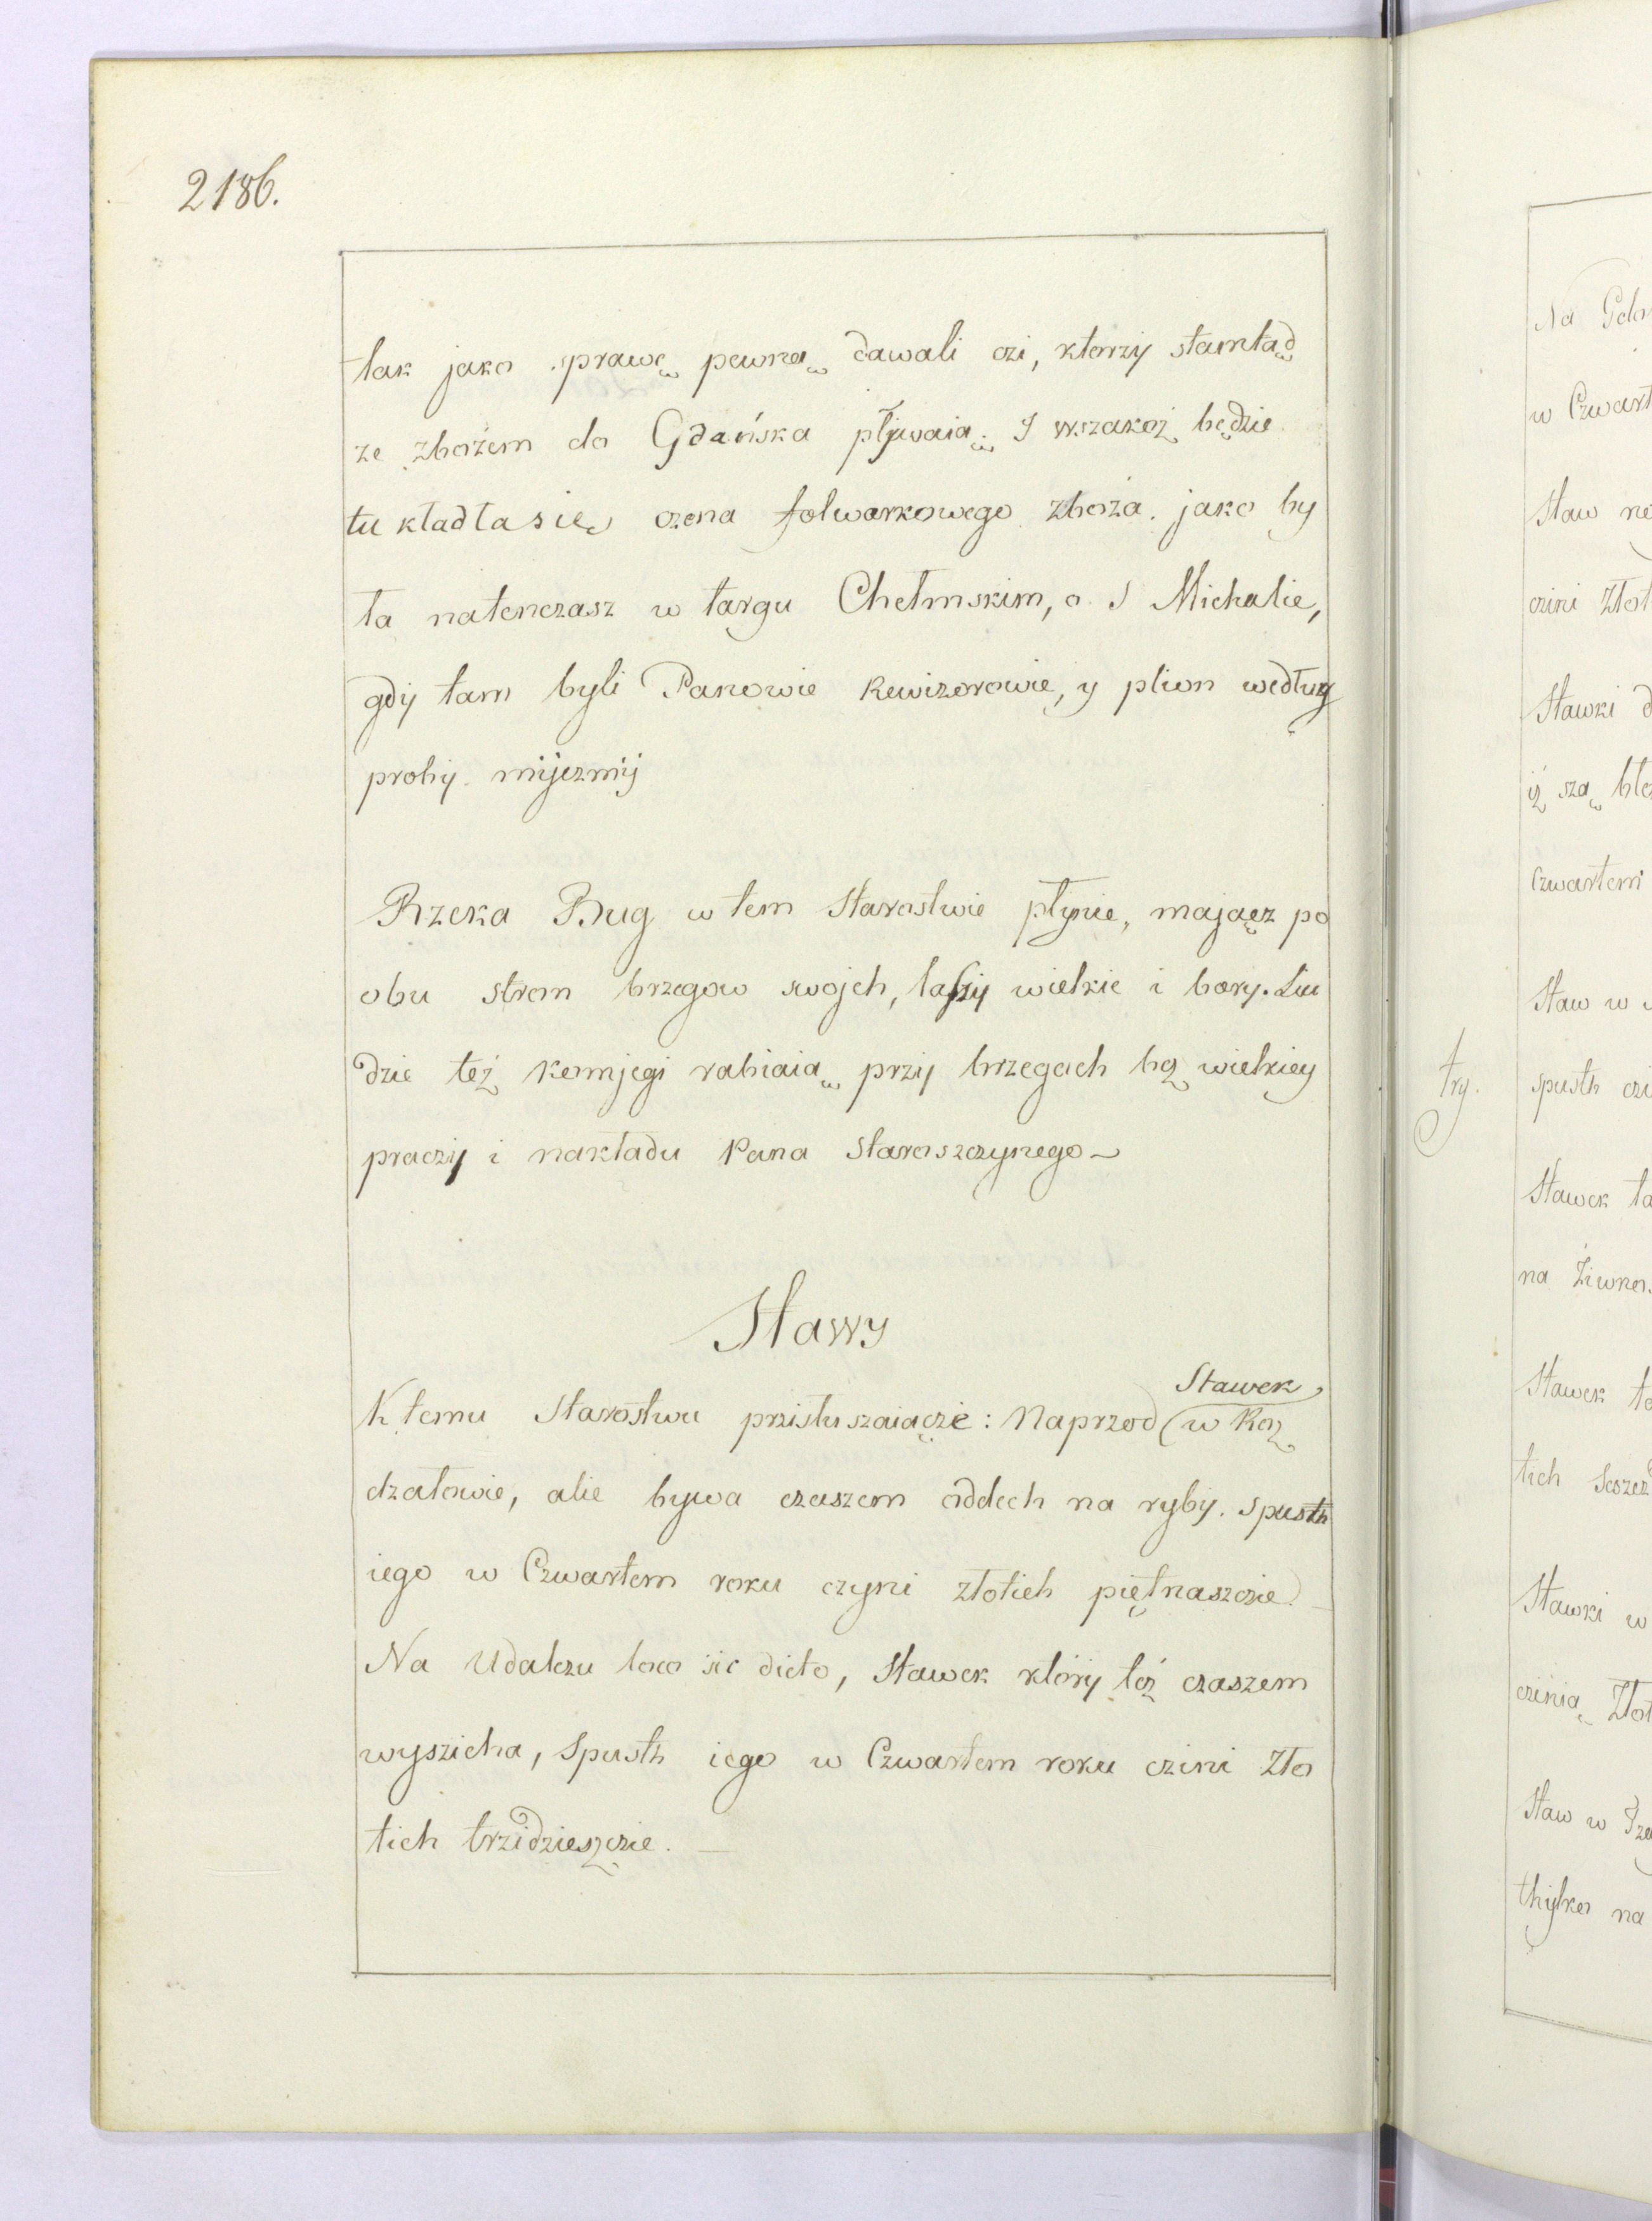 2186.
tak jako sprawę pewną dawali czi, ktorzy stamtąd
ze zbożem do Gdańska płÿwaią. I wszakoż będzie
tu kładła się czena folwarkowego zboża. jako by
ta natenczasz w targu Chełmskim, o S Michalie,
gdÿ tam byli Panowie Rewizorowie, y plion według
probÿ mÿeznÿ
Rzeka Bug w tem Starostwie płynie, mająęz po
obu stron brzegow swojch, laszÿ wielkie i bory. Liu
dzie też komjegi robiaią przÿ brzegach bez wielkiey
praczÿ i nakładu Pana Staroszczynego
Stawy
K temu Starostwu przisłuszaiączie: Naprzod (w Roz
Stawek
dzałowie, alie bywa czaszem oddech na rybÿ. Spusth
iego w Czwartem roku czyni złotich piętnaszczie.
Na Udalczu loco sic dicto, Stawek którÿ też czaszem
wyszicha, Spusth iego w Czwartem roku czini Zło
tich trzidzieszczie.
Na
w Czwart
Staw
czini Złot
Stawki
iż szą
Czwartem
Staw w
try.
spusth czi
Stawek
na
Stawek
tich
Stawki w
czinią Złot
Staw w
thÿlko na